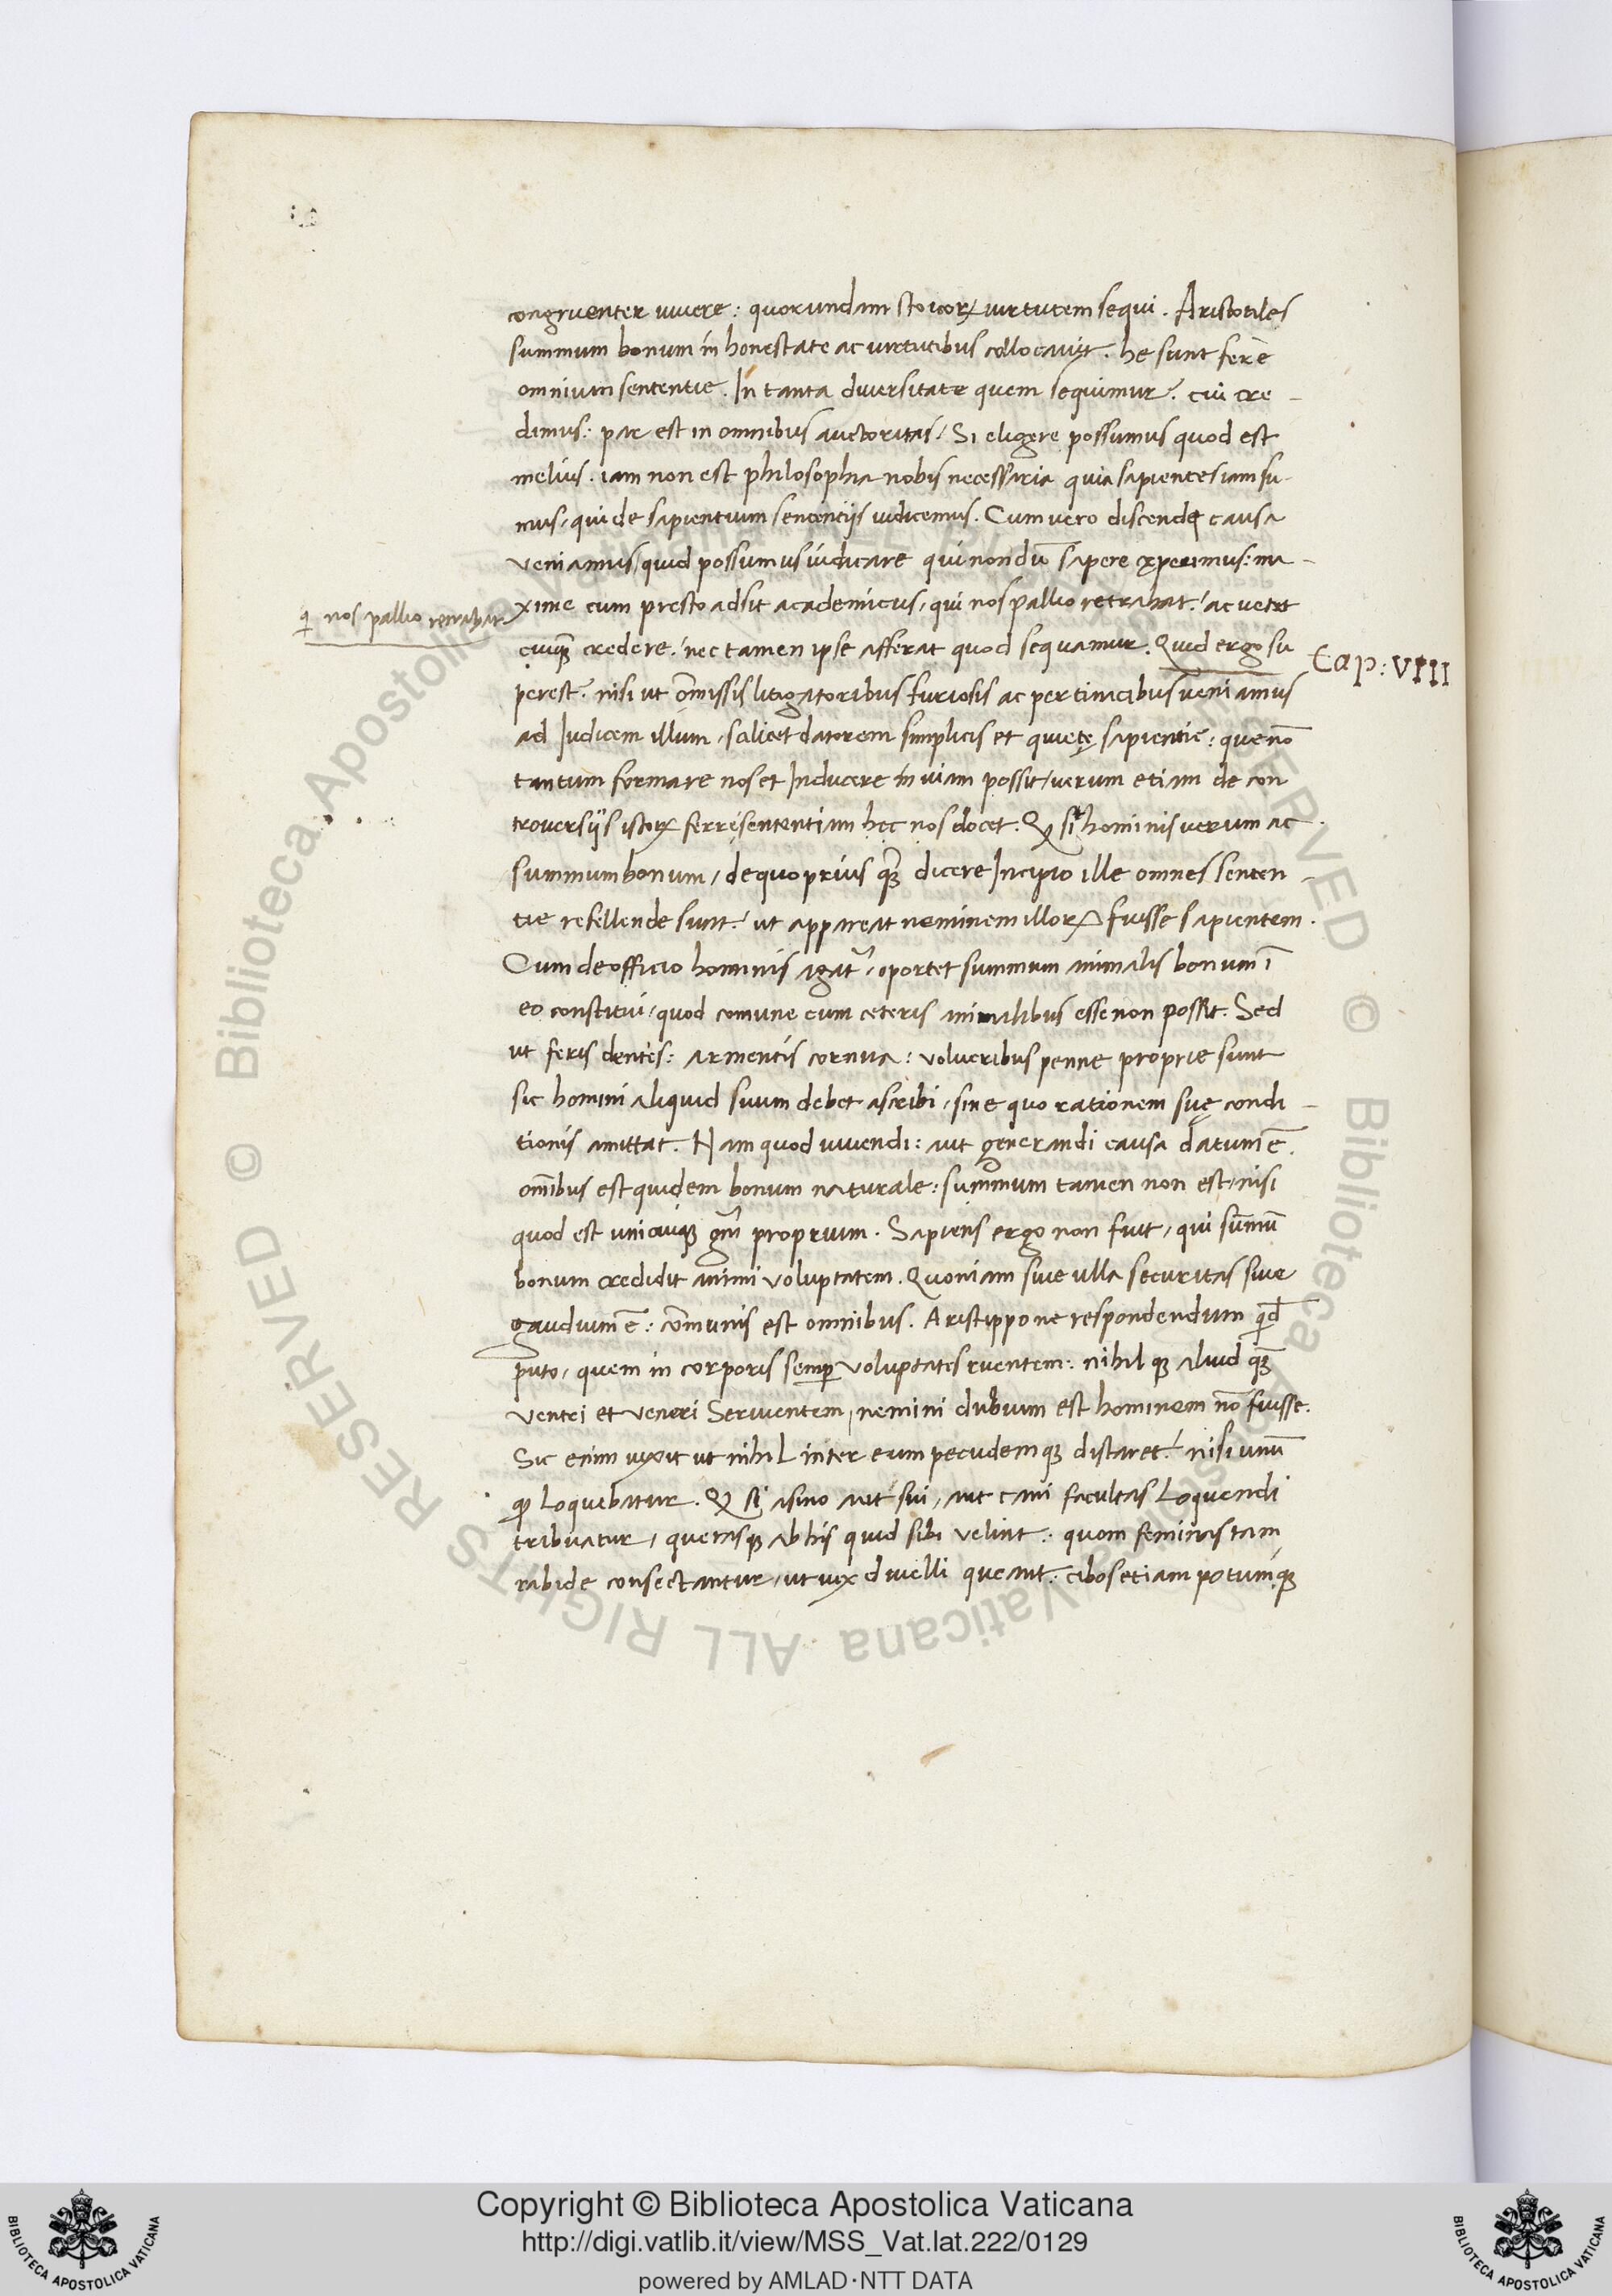 congruenter vivere: quorundam stoicoꝝ virtutem sequi. Aristotiles
summum bonum in honestate ac virtutibus collocavit. he sunt fere
omnium sententie. In tanta diversitate quem sequimur? cui cre-
dimus: par est in omnibus auctoritas. Si eligere possumus quod est
melius. iam non est philosophia nobis necessaria quia sapientes iam su-
mus, qui de sapientium sententiis iudicemus. Cum vero discendę causa
veniamus, quid possumus iudicare qui nondū sapere cęperimus: ma-
q̄ nos pallio retrahat
xime cum presto adsit academicus, qui nos pallio retrahat. ac vetet
cuiqꝫ credere. nec tamen ipse afferat quod sequamur. Quid ergo su
Cap: VIII
perest? nisi ut om̄issis litigatoribus furiosis ac pertinacibus veniamus
ad Iudicem illum, scilicet datorem simplicis et quietę sapientie: que nō
tantum formare nos et Inducere in viam possit, verum etiam de con
troversiis istoꝝ ferre sententiam hęc nos docet. Q sit hominis verum ac
summum bonum, de quo prius qꝫ dicere Incipio ille omnes senten-
tie refellende sunt. ut appareat neminem illoꝝ fuisse sapientem.
Cum de officio hominis agat᷑, oportet summum animalis bonum ī
eo constitui, quod comune cum ceteris animalibus esse non possit. Sed
ut feris dentes: armentis cornua: volucribus penne proprie sunt
sic homini aliquid suum debet ascribi, sine quo rationem suę condi-
tionis amittat. Nam quod vivendi: aut generandi causa datum ē
om̄ibus est quidem bonum naturale: summum tamen non est, nisi
quod est unicuiqꝫ gn̄i proprium. Sapiens ergo non fuit, qui sūmū
bonum credidit animi voluptatem. Quoniam sive illa securitas sive
gaudium ē: cōmunis est omnibus. Aristippo ne respondendum qd̄
puto, quem in corporis semꝑ voluptates ruentem: nihilqꝫ aliud qꝫ
ventri et veneri Servientem, nemini dubium est hominem nō fuisse.
Sic enim vixit ut nihil inter eum pecudemqꝫ distaret. nisi unū
qꝫ loquebatur. Q si asino aut sui, aut cani facultas Loquendi
tribuatur, querasqꝫ ab his quid sibi velint: quom feminas tam
rabide consectantur, ut vix divelli queant: cibos etiam potumqꝫ
© Biblioteca Apostolica Vaticana ALL RIGHTS RESERVED © Biblioteca Apostolica Vaticana ALL RIGHTS RESERVED
Copyright © Biblioteca Apostolica Vaticana
http://digi.vatlib.it/view/MSS_Vat.lat.222/0129
powered by AMLAD·NTT DATA
BIBLIOTECA APOSTOLICA VATICANA
BIBLIOTECA APOSTOLICA VATICANA